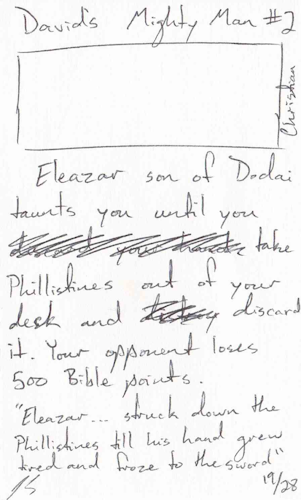 David's Mighty Man #2
Christian
Eleazar son of Dodai
taunts you until you
take
Phillistines out of your
desk and discard
it. Your opponent loses
500 Bible points.
"Eleazar... struck down the
Phillistines till his hand grew
tired and froze to the sword"
19/28